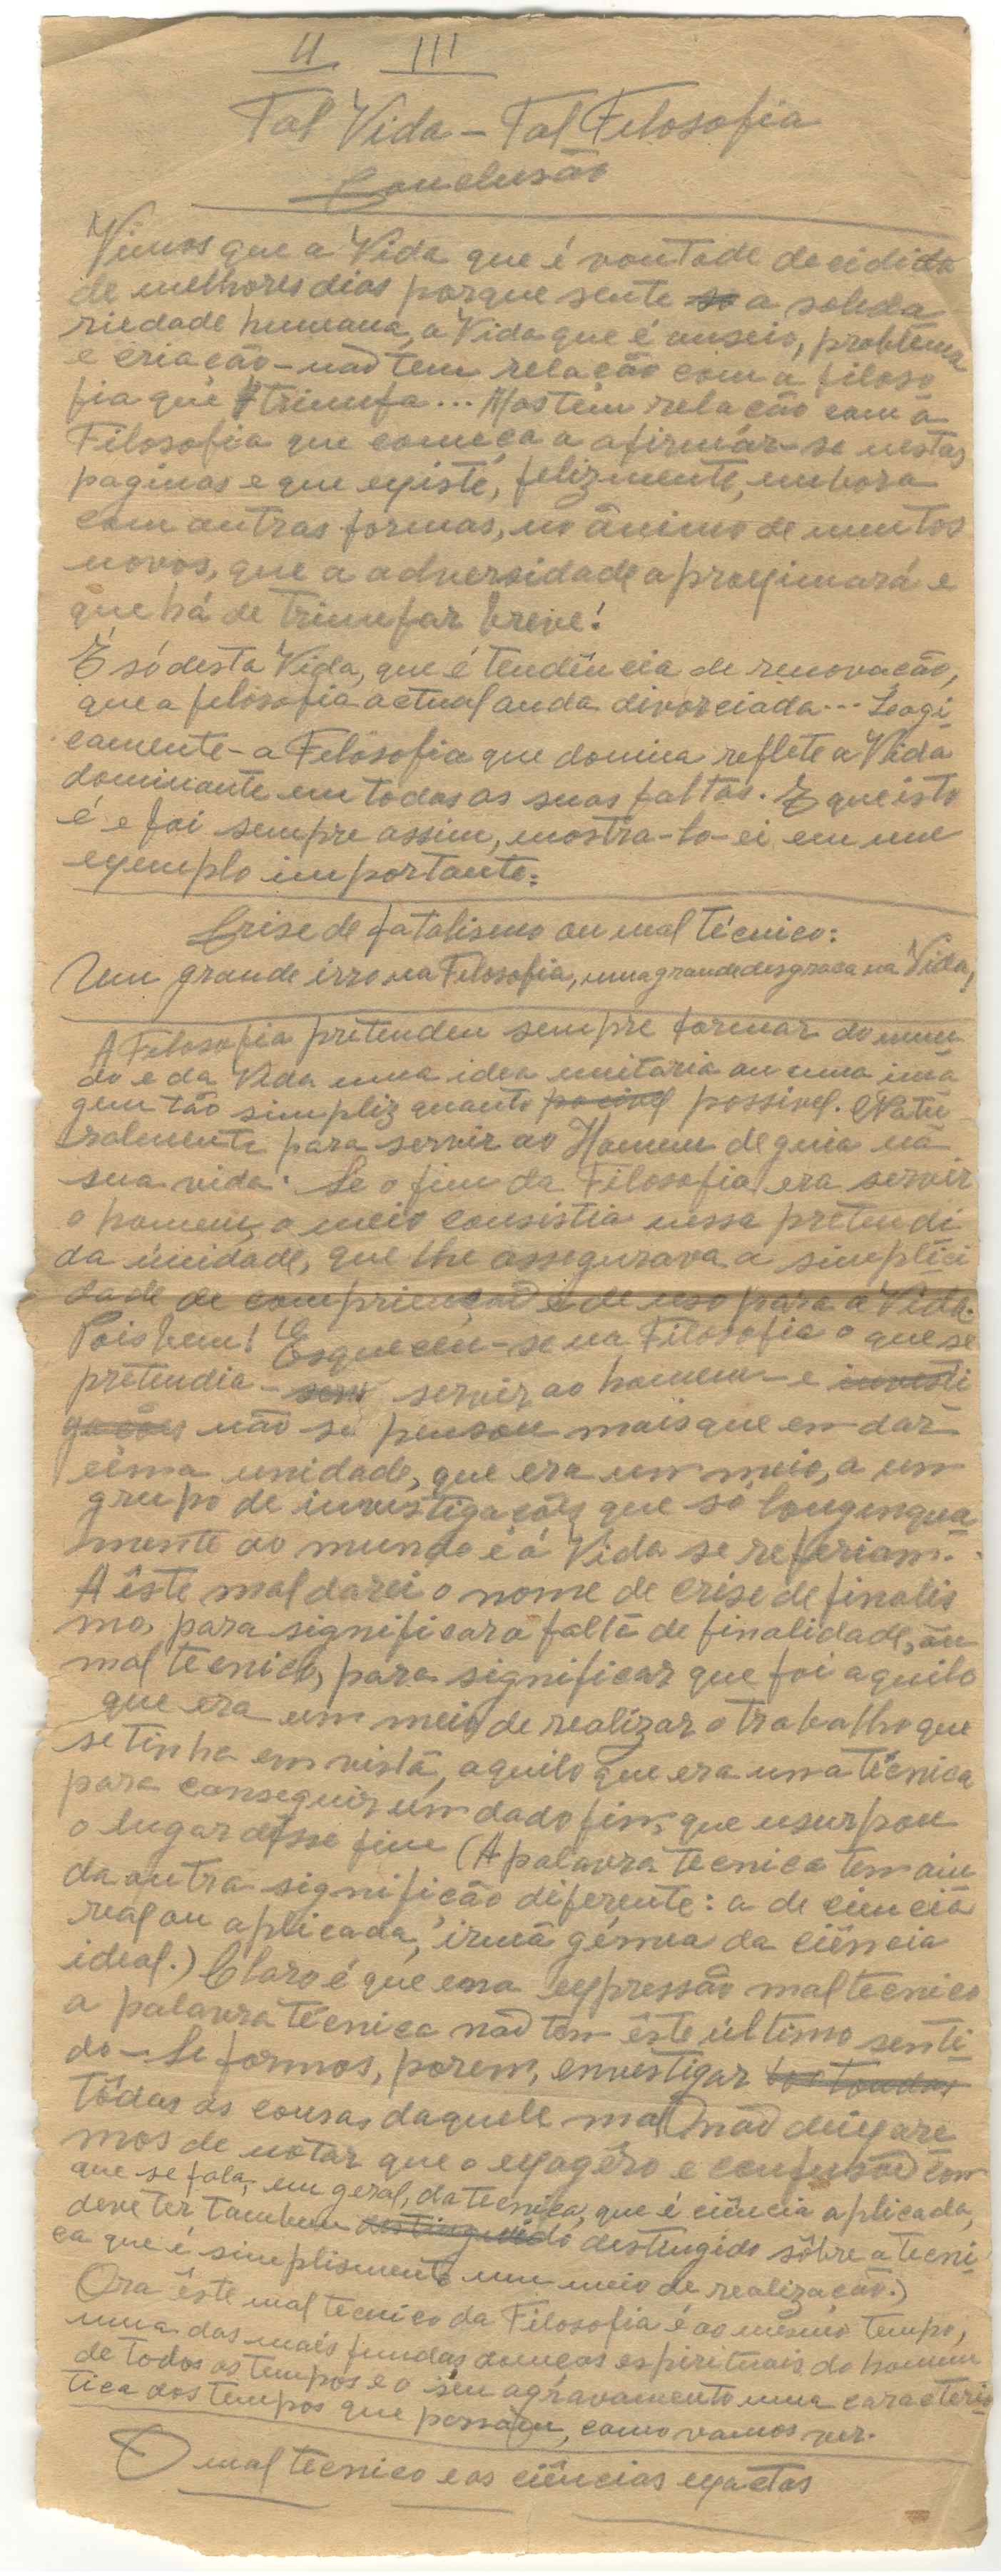 II III
Tal Vida - Tal Filosofia
Conclusão
Vimos que a Vida que é vontade decidida
de melhores dias porque sente so a solida
riedade humana, a Vida que é anseio, problema
e criação - não tem relação com a filoso
fia que triumfa... Mas tem relação com a
Filosofia que começa a afirmar-se nestas
paginas e que existe, felizmente, embora
com outras formas, no ânimo de muitos
novos, que a adversidade aproximará e
que há de triumfar breve!
É só desta Vida, que é tendência de renovação,
que a filosofia actual anda divorciada... Logi-
camente - a Filosofia que domina reflete a Vida
dominante em todas as suas faltas. E que isto
é e foi sempre assim, mostra-lo-ei em um
exemplo importante:
Crise de fatalismo ou mal técnico:
Um grande irro na Filosofia, uma grande desgraça na Vida,
A Filosofia pretendeu sempre formar do mun-
do e da Vida uma idea unitaria ou uma ima
gem tão simpliz quanto pocivel possivel. Natu-
ralmente para servir ao Homem de guia na
sua vida. Se o fim da Filosofia era servir
o homem, o meio consistia nessa pretendi
da unidade, que lhe assegurava a simplici
dade de comprienção e de uso para a Vida.
Pois bem! Esqueceu-se na Filosofia o que se
pretendia - servir ao homem - e investi
gações não se pensou mais que em dar
uma unidade, que era um meio, a um
grupo de investigações que só longinqua-
mente ao mundo e á Vida se referiam.
A êste mal darei o nome de crise de finalis
mo, para significar a falta de finalidade, ou
mal tecnico, para significar que foi aquilo
que era um meio de realizar o trabalho que
se tinha em vista, aquilo que era uma técnica
para conseguir um dado fim, que usurpou
o lugar dêsse fim (A palavra tecnica tem ain
da outra significão diferente: a de ciencia
real ou aplicada, irmã gémea da ciência
ideal.) Claro é que na expressão mal tecnico
a palavra técnica não tem êste último senti-
do - Se formos, porem, envestigar
tôdas as cousas daquele mal não deixare
mos de notar que o exagêro e confusão com
que se fala, em geral, da tecnica, que é ciência aplicada,
deve ter tambem destinguido destingido sôbre a tecni-
ca que é simplismente um meio de realização.)
Ora êste mal tecnico da Filosofia é ao mesmo tempo,
uma das mais fundas doenças espirituais do homem
de todos os tempos e o seu agravamento uma caracteris-
tica dos tempos que passam, como vamos ver.
O mal tecnico e as ciências exactas